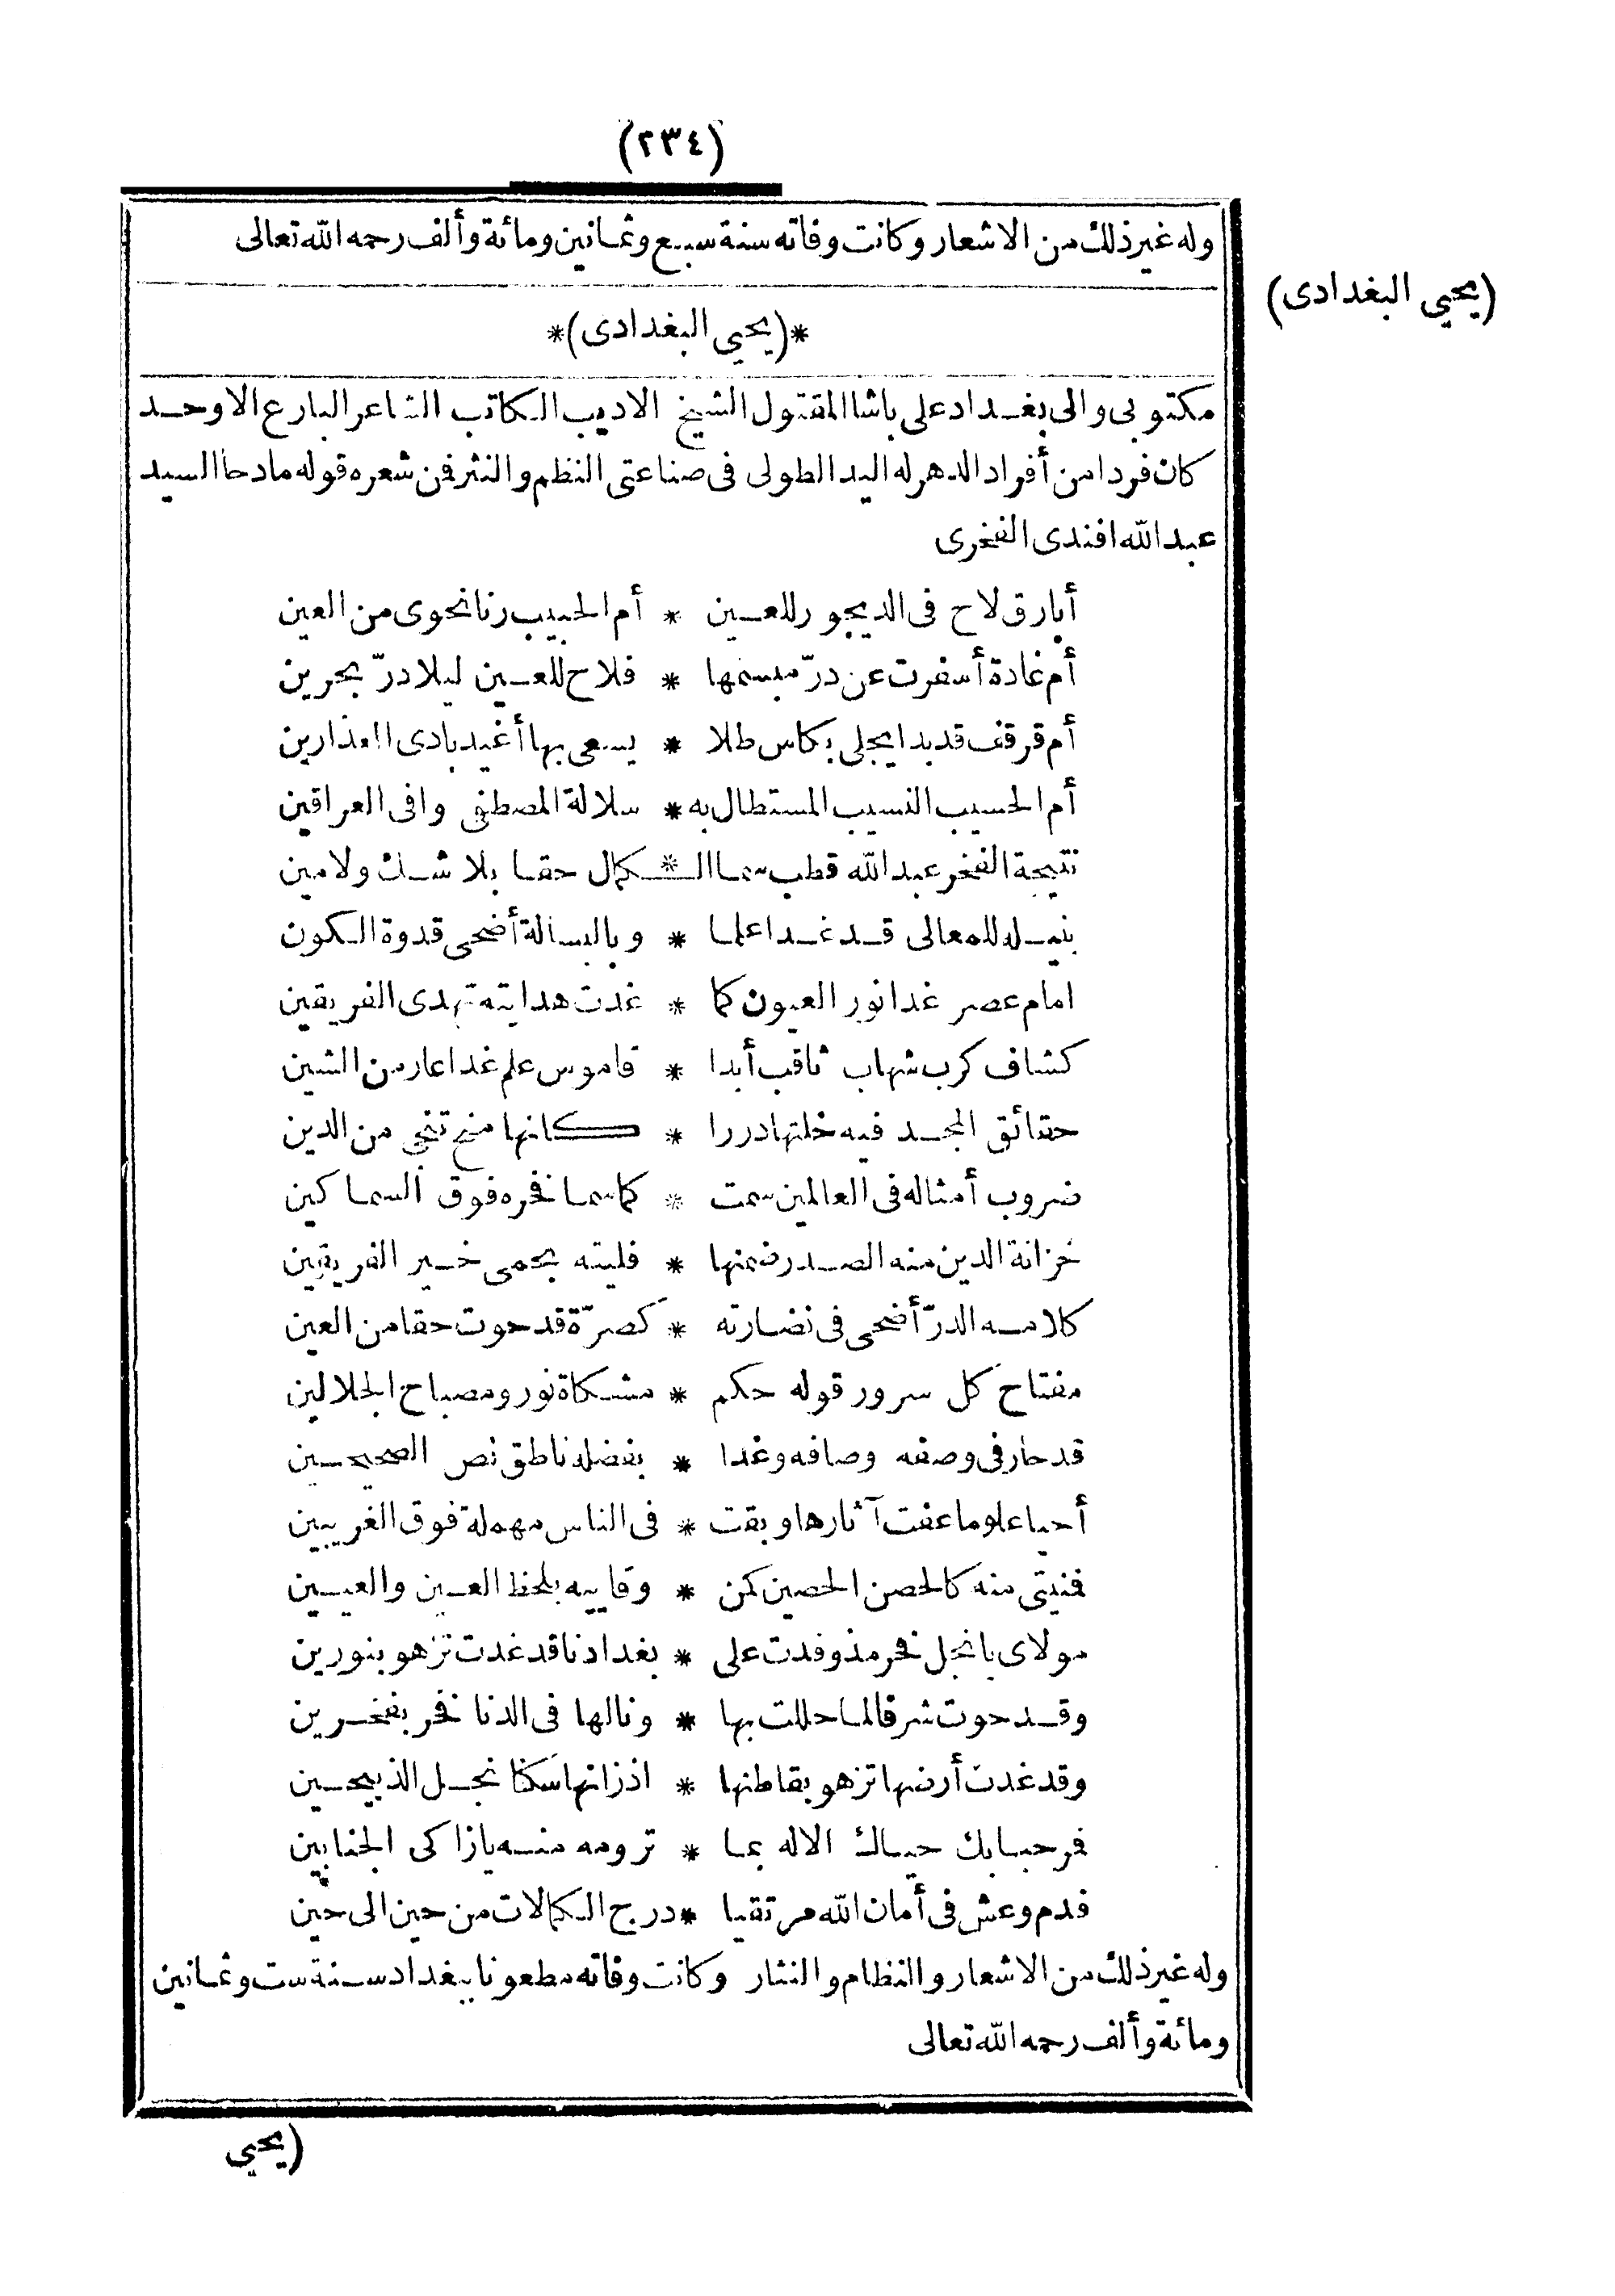 (٢٣٤)
وله غير ذلك من الاشعار وكانت وفاته سنة سبع وثمانين ومائة وألف رحمه الله تعالى
(يحيي البغدادى)
*(يحيي البغدادى)*
مكتوبى والى بغداد على باشا المقتول الشيخ الاديب الكاتب الشاعر البارع الاوحد
كان فردا من أفراد الدهر له اليد الطولى فى صناعتى النظم والنثر فمن شعره قوله مادحا السيد
عبد الله افندى الفخرى
أبارق لاح فى الديجور للعين * أم الحبيب رنا نحوى من العين
أم غادة أسفرت عن درّ مبسمها * فلاح للعين ليلا درّ بحرين
أم قرقف قد بدا يجلى بكاس طلا * يسعى بها أغيد بادى العذارين
أم الحسيب النسيب المستطال به * سلالة المصطفى وافى العراقين
نتيجة الفخر عبد الله قطب سما الـ * ـكمال حقا بلا شك ولا مين
بنيله للمعالى قد غدا علما * وبالبسالة أضحى قدوة الكون
امام عصر غدا نور العيون كما * غدت هدايته تهدى الفريقين
كشاف كرب شهاب ثاقب أبدا * قاموس علم غدا عار من الشين
حقائق المجد فيه خلتها دررا * كانها منح تنجى من الدين
ضروب أمثاله فى العالمين سمت * كما سما فخره فوق السماكين
خزانة الدين منه الصدر ضمنها * فليته يحمى خير الفريقين
كلامه الدرّ أضحى فى نضارته * كصرّة قد حوت حقا من العين
مفتاح كل سرور قوله حكم * مشكاة نور ومصباح الجلالين
قد حار فى وصفه وصافه وغدا * بفضله ناطق نص الصحيحين
أحيا علوما عفت آثارها وبقت * فى الناس مهملة فوق الغريبين
فنيتى منه كالحصن الحصين كمن * وقاييه بلحظ العين والعيسين
مولاى يا نجل فخر مذ وفدت على * بغداد نا قد غدت تزهو بنورين
وقد حوت شرفا لما حللت بها * ونالها فى الدنا فخر بفخرين
وقد غدت أرضها تزهو بقاطنها * اذ زانها سكنا نجل الذبيحين
فمرحبا بك حياك الاله بما * ترومه منه يا زاكى الجنابين
فدم وعش فى أمان الله مرتقيا * درج الكمالات من حين الى حين
وله غير ذلك من الاشعار والنظام والنثار وكانت وفاته مطعونا ببغداد سنة ست وثمانين
ومائة وألف رحمه الله تعالى
(يحيي